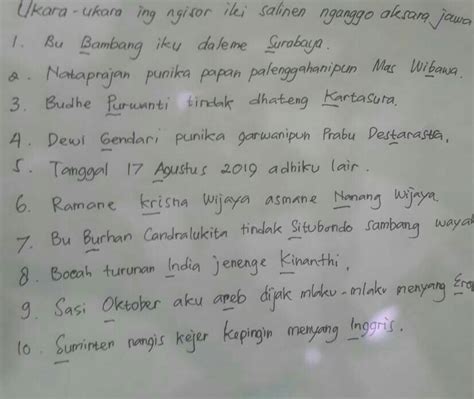 Ukara-ukara ing ngisor iki salinen nganggo aksara jawa
1. Bu Bambang iku daleme Surabaya.
2. Nataprajan punika papan palenggahanipun Mas Wibawa.
3. Budhe Purwanti tindak dhateng Kartasura.
4. Dewi Gendari punika garwanipun Prabu Destarastra.
5. Tanggal 17 Agustus 2019 adhiku lair.
6. Ramane krisna Wijaya asmane Nanang Wijaya.
7. Bu Burhan Candralukita tindak Situbondo sambang wayah
8. Bocah turunan India jenenge Kinanthi.
9. Sasi Oktober aku arep dijak mlaku-mlaku menyang Ero
10. Suminten nangis kejer kepingin menyang Inggris.